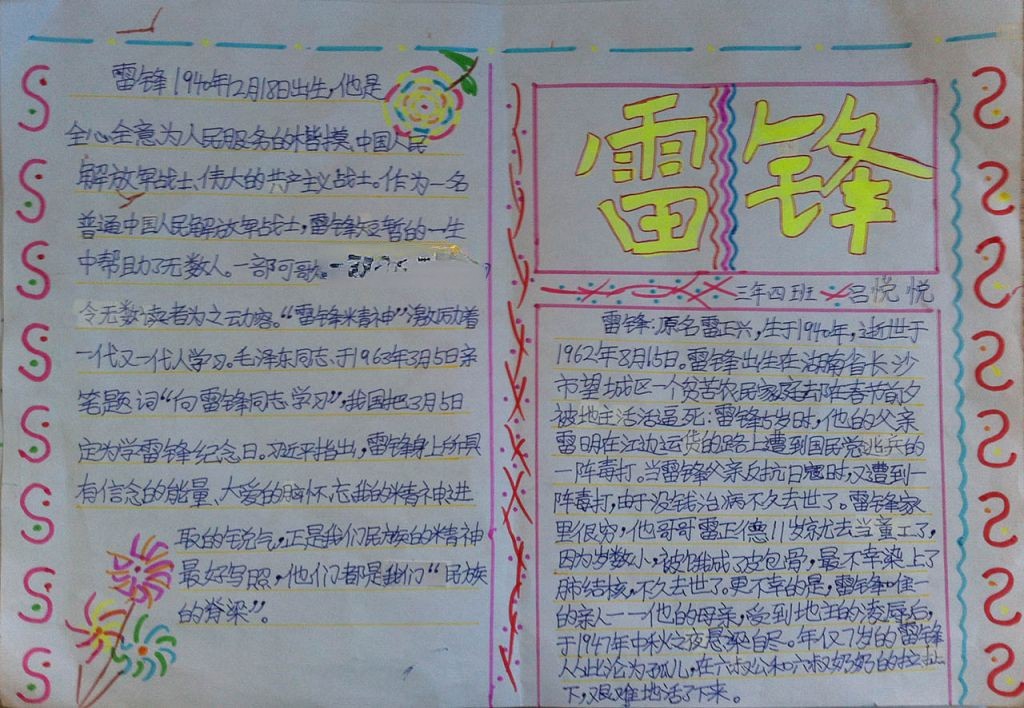 雷锋1940年12月18日出生,他是
全心全意为人民服务的楷模、中国人民
解放军战士、伟大的共产主义战士。作为一名
普通中国人民解放军战士,雷锋短暂的一生
中帮助了无数人。一部可歌
令无数读者为之动容。“雷锋精神”激励着
一代又一代人学习。毛泽东同志于1963年3月5日亲
笔题词“向雷锋同志学习”,我国把3月5日
定为学雷锋纪念日。习近平指出,雷锋身上所具
有信念的能量、大爱的胸怀、忘我的精神、进
取的锐气,正是我们民族的精神
最好写照,他们都是我们“民族
的脊梁”。
雷锋
三年四班 吕悦悦
雷锋:原名雷正兴,生于1940年,逝世于
1962年8月15日。雷锋出生在湖南省长沙
市望城区一个贫苦农民家庭去的在春节前夕
被地主活活逼死:雷锋5岁时,他的父亲
雷明在江边运货的路上遭到国民党逃兵的
一阵毒打。当雷锋父亲反抗日寇时,又遭到一
阵毒打,由于没钱治病不久去世了。雷锋家
里很穷,他哥哥雷正德11岁就去当童工了,
因为岁数小,被饿成了皮包骨,最不幸染上了
肺结核,不久去世了。更不幸的是,雷锋唯一
的亲人一一他的母亲,受到地主的凌辱后,
于1947年中秋之夜悬梁自尽。年仅7岁的雷锋
从此沦为孤儿,在六叔公和六叔奶奶的拉扯
下,艰难地活了下来。